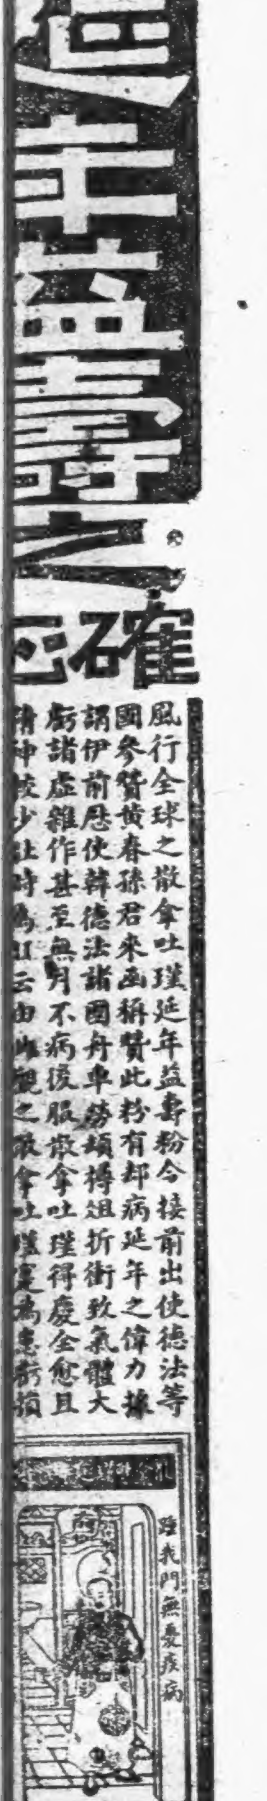 延年益壽
之
確
風行全球之散拿吐瑾延年益壽粉今接前出使德法等
國參贊黃春孫君來函稱贊此粉有却病延年之偉力據
謂伊前歷使韓德法諸國舟車勞頓樽俎折衝致氣體大
虧諸虛雜作甚至無月不病後服散拿吐瑾得慶全愈且
精神較少壯時為旺云由此觀之散拿吐瑾實為患虧損
踵我門無憂疾病